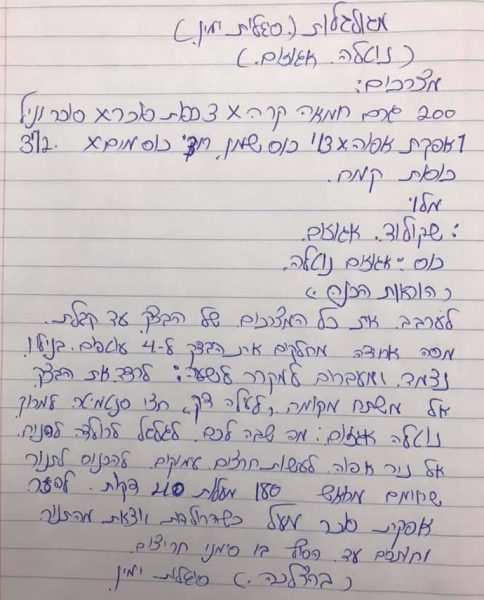 מגולגלות (סגלית ימין.)
(נוטלה. אגוזים.)
מצרכים:
200 גרם חמאה קרה x צפאת סוכר x סוכר וניל
1 אפקת אפוה x צוי כוס שמן. חצי כוס מים x 2. וצ
כוסות קמח.
מלוי
: שקולד. אגוזים.
כוס - אגוזים נוטלה.
(הוראות הכנה)
לערבב. את כל המצרכים. של הבצק. עד קבלת.
מסה אחודה מחלקים את הבצק ל-4 עוגפים. בנילון
נצמד. ומעברים למקרר לשעה: לרדד את הבצק.
אל משתח מקומח, לעלה דק, חצי סנטמיטר למרוח
נוטלה אגוזים: מה שבה לכם. לגלגל לרולדה לפניח.
אל ניר אפוה. לעשות חרוצים עמקים. להכנוס לתנור
שחומם מראש 180 מעלות 20 דקות. לפזר.
אפקת סכר מעל כשהרולדות יוצאת מהתנור.
וחותכים עד. הסוף בו סימני חריצים.
(בהצלחה.) סיגלת ימין.